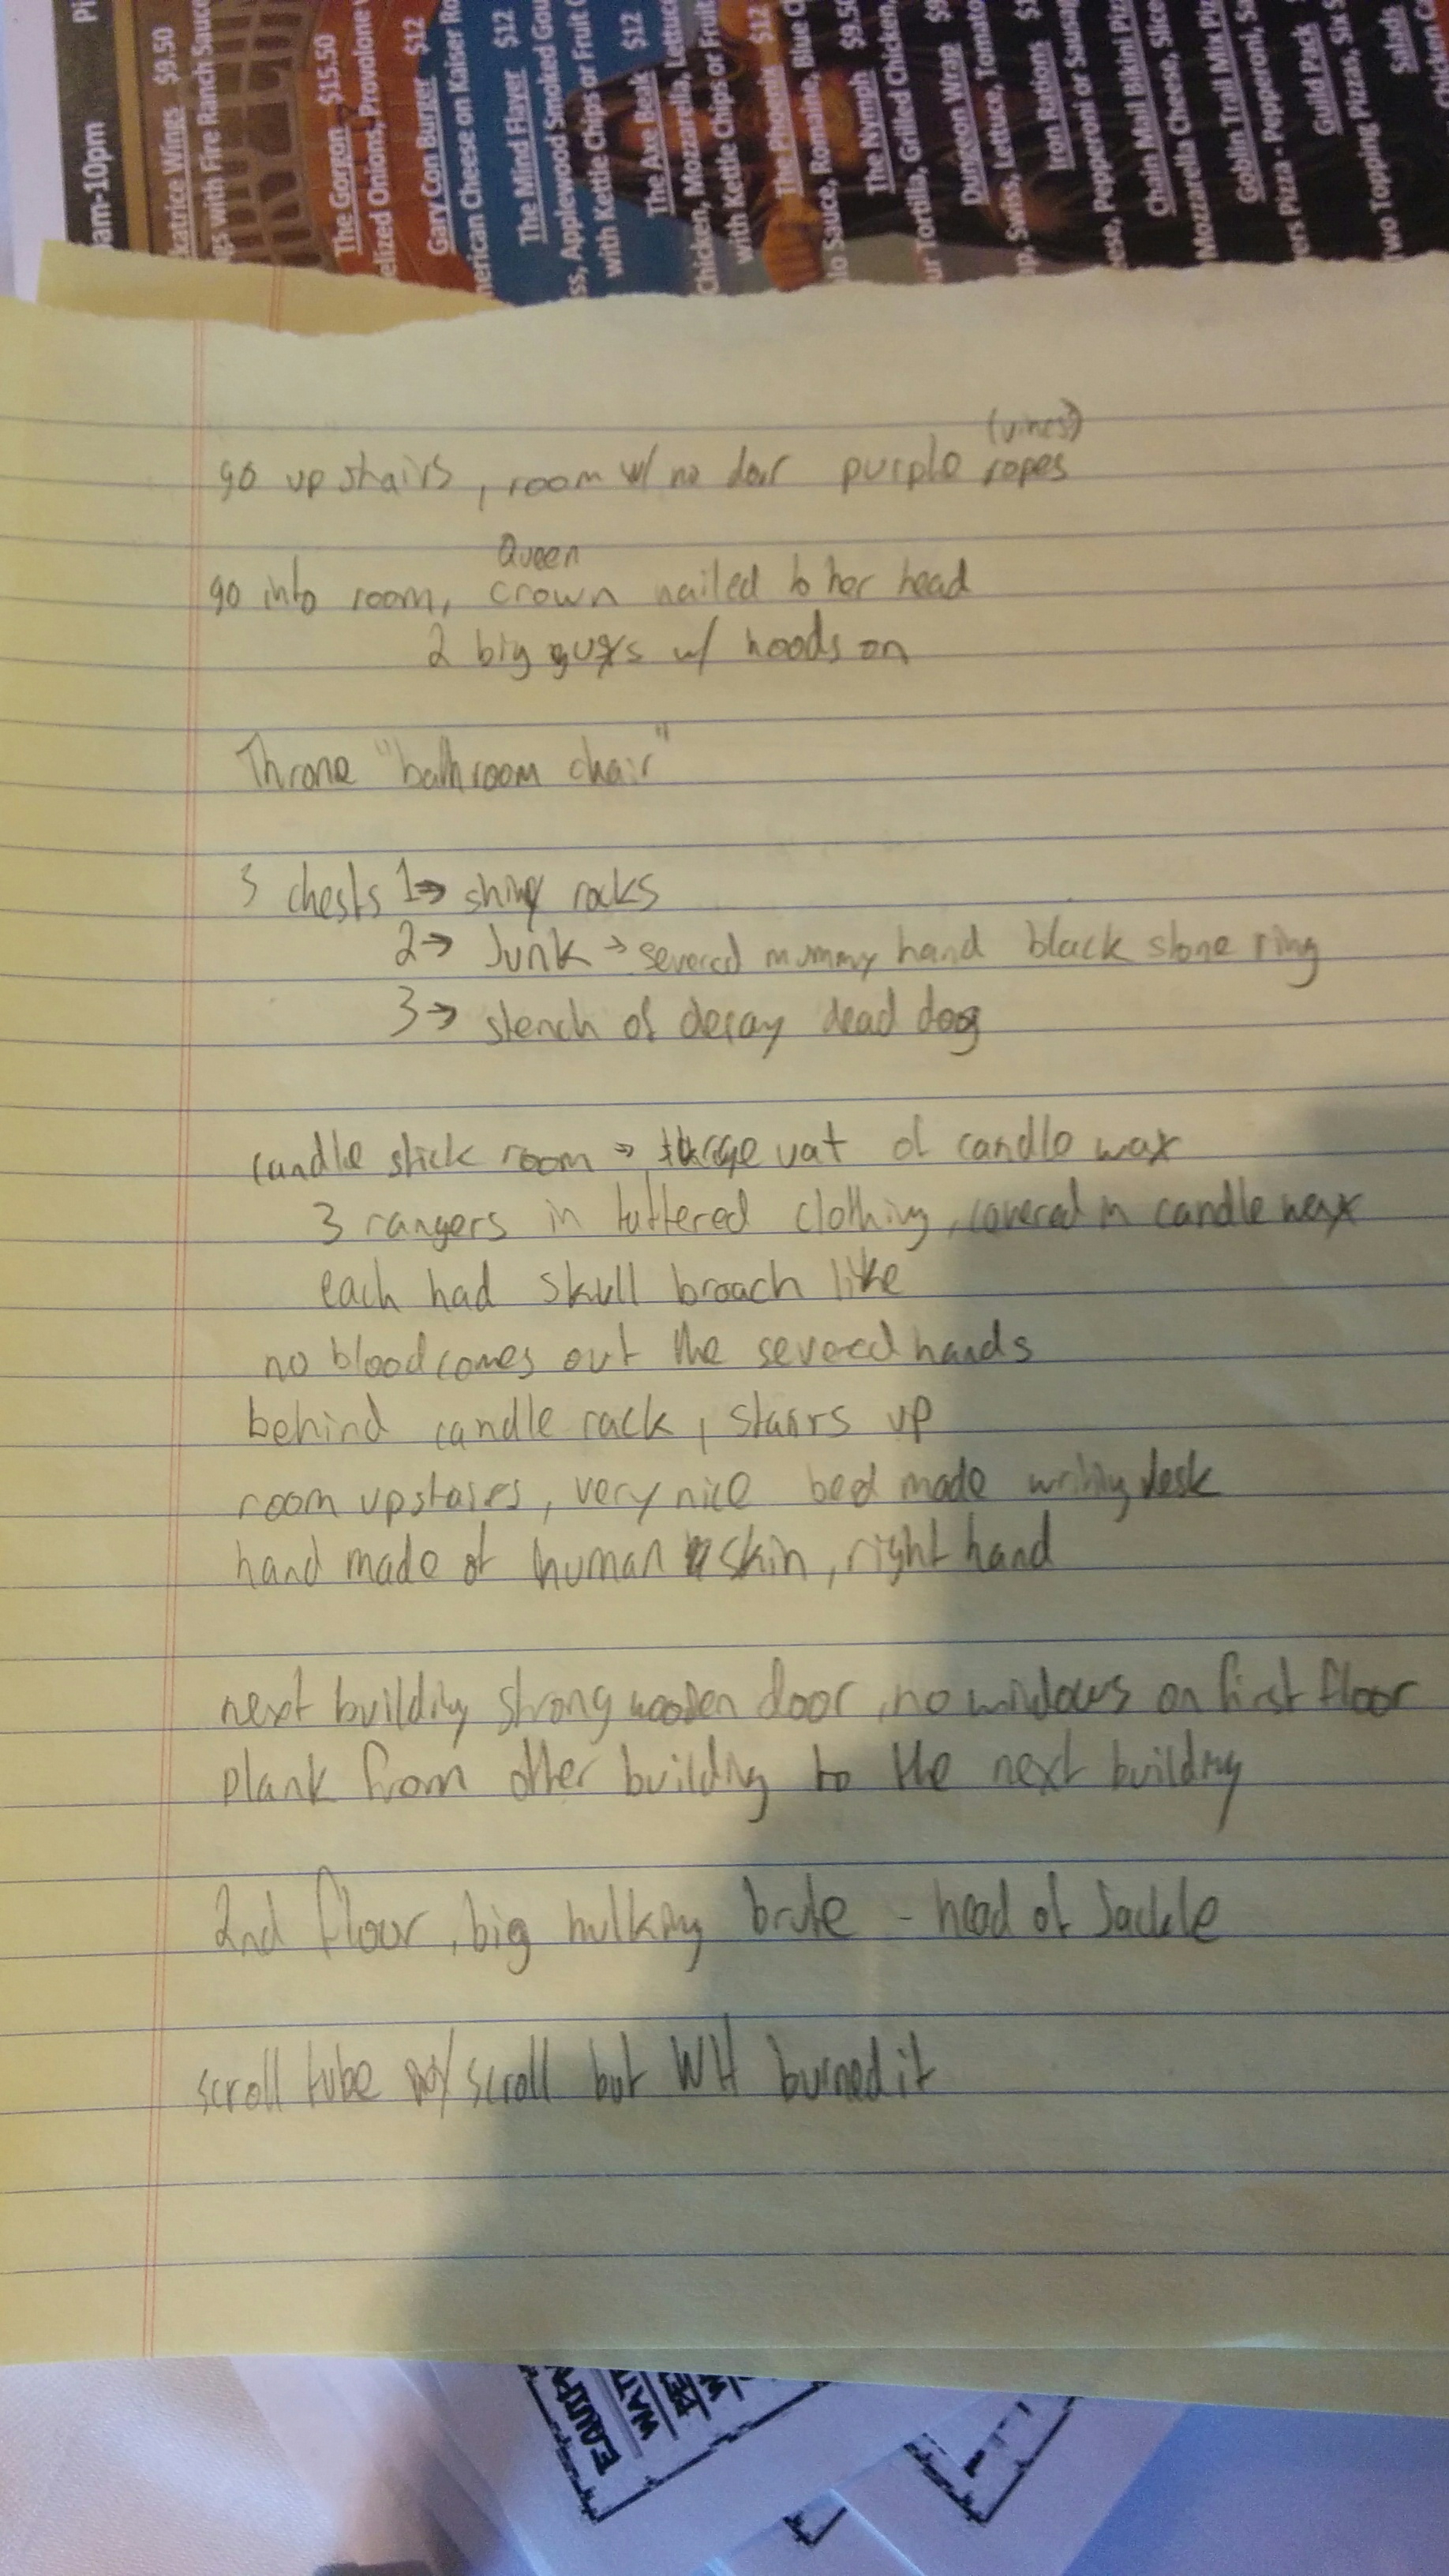 am-10pm
Pi
katrice Wings $9.50
gs with Fire Ranch Sauce
The Gorgon $15.50
elized Onions, Provolone
Gary Con Burger $12
merican Cheese on Kaiser Ro
The Mind Flayer $12
ss, Applewood Smoked Gou
with Kettle Chips or Fruit C
The Axe Beak $12
Chicken, Mozzarella, Lettuce
with Kettle Chips or Fruit
The Phoenix $12
lo Sauce, Romaine, Blue C
The Nymph $9.50
ur Tortilla, Grilled Chicken,
Dungeon Wrap $9
p, Swiss, Lettuce, Tomato
Iron Rations $1
ese, Pepperoni or Sausag
Chain Mail Bikini Piz
Mozzarella Cheese, Slice
Goblin Trail Mix Piz
ers Pizza - Pepperoni, Sa
Guild Pack
Two Topping Pizzas, Six S
Salads
Chicken Ca
(vines?)
go upstairs, room w/ no door purple ropes
Queen
go into room, crown nailed to her head
2 big guys w/ hoods on
Throne "bathroom chair"
3 chests 1→ shiny rocks
2→ Junk → severed mummy hand black stone ring
3→ stench of decay dead dog
candle stick room → large vat of candle wax
3 rangers in tattered clothing, covered in candle wax
each had skull broach like
no blood comes out the severed hands
behind candle rack, stairs up
room upstairs, very nice bed made writing desk
hand made of human skin, right hand
next building strong wooden door, no windows on first floor
plank from other building to the next building
2nd floor, big hulking brute - head of Jackle
scroll tube w/ scroll but WH burned it
EQUIP
WAT